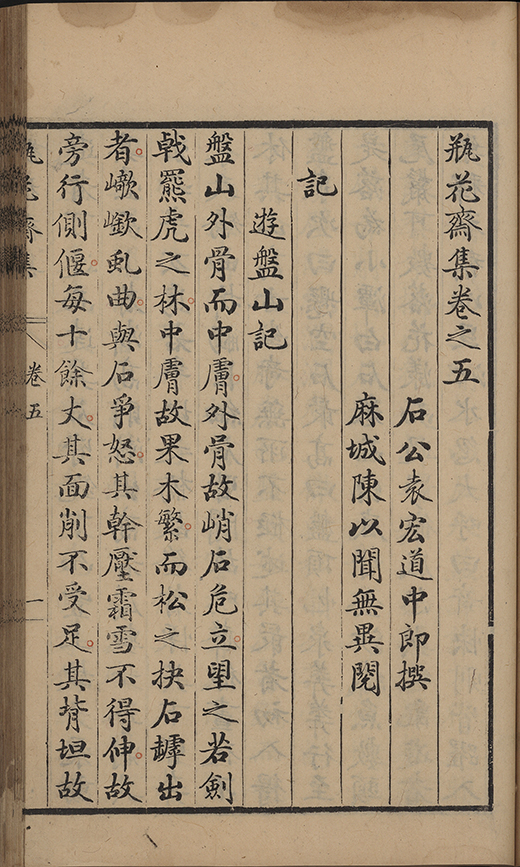 瓶花齋集卷之五
石公袁宏道中郎撰
麻城陳以聞無異閱
記
遊盤山記
盤山外骨而中膚外骨故峭石危立望之若劍
戟羆虎之林中膚故果木繁而松之抉石罅出
者嶔虬曲與石爭怒其幹壓霜雪不得伸故
旁行側偃每十餘丈其面削不受足其背坦故
瓶花齋集
卷五
一